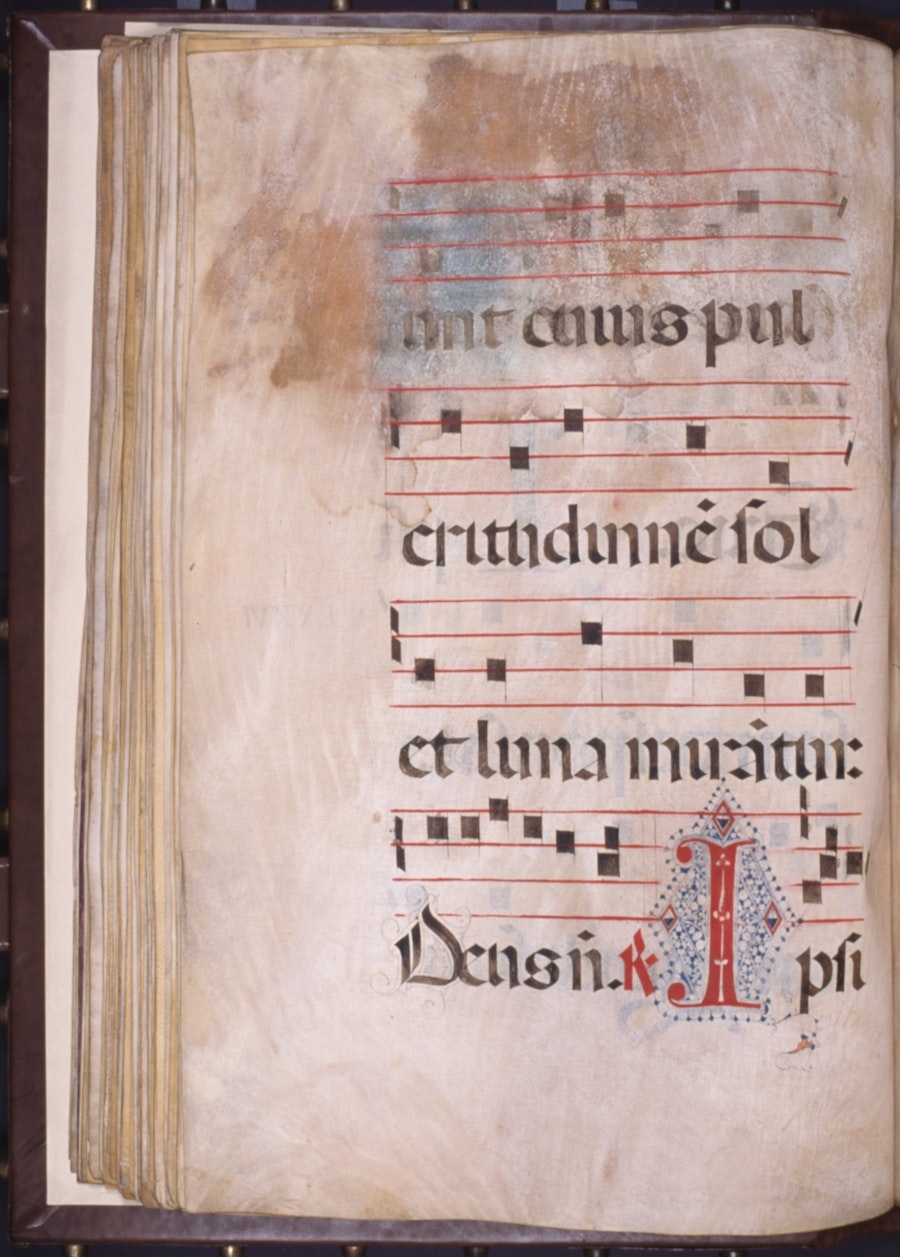 unt cuius pul
critudinnẽ sol
et luna mirãtur:
Deus n̄. R Ipsi